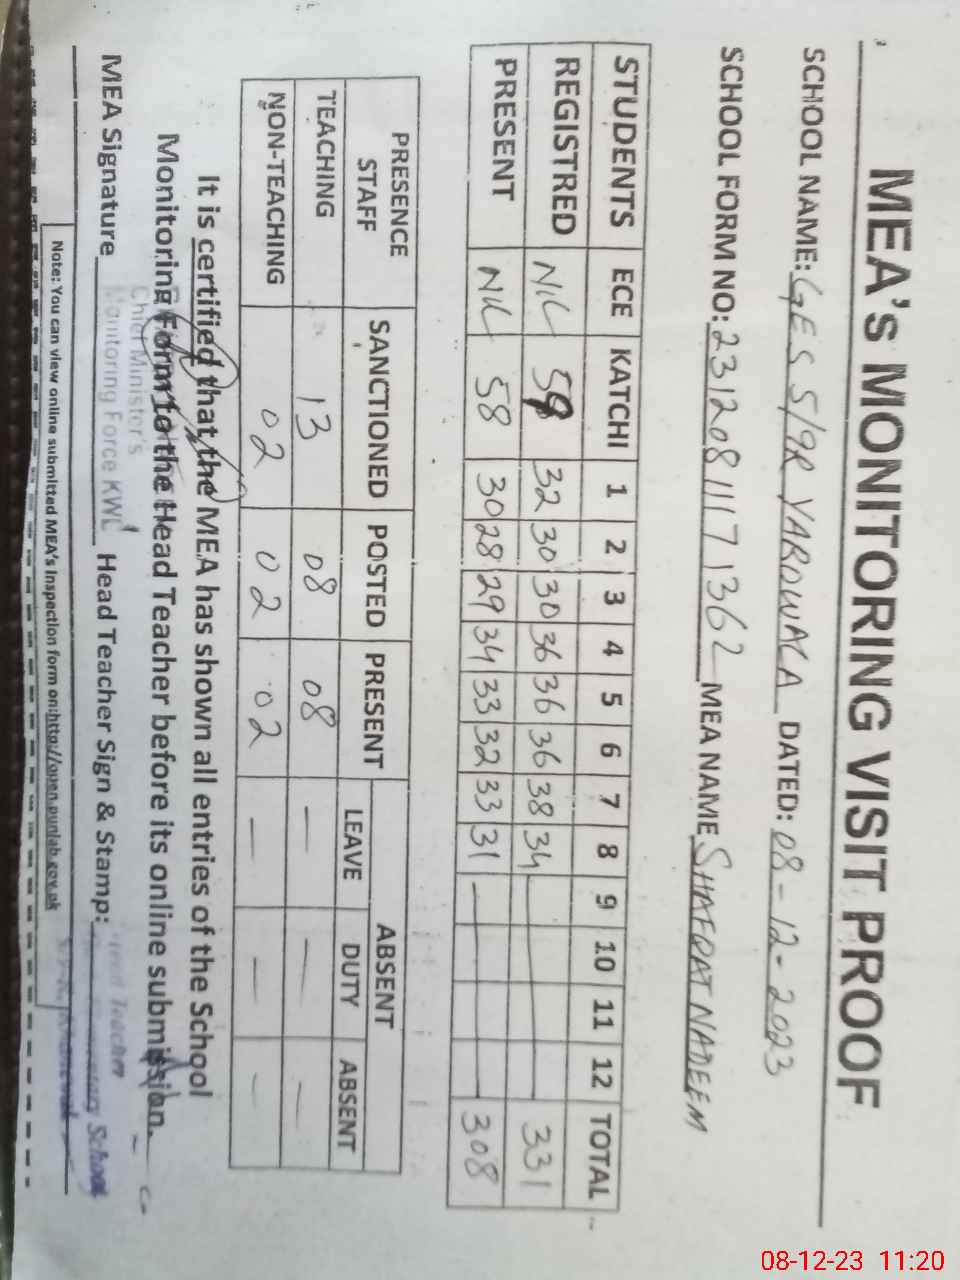 MEA's MONITORING VISIT PROOF
SCHOOL NAME: GES 5/9R YAROWALA DATED: 08-12-2023
SCHOOL FORM NO: 23120811171362 MEA NAME SHAFQAT NADEEM
STUDENTS ECE KATCHI 1 2 3 4 5 6 7 8 9 10 11 12 TOTAL
REGISTRED NIL 59 32 30 30 36 36 36 38 34 — 331
PRESENT NIL 58 30 28 29 34 33 32 33 31 — 308
PRESENCE STAFF SANCTIONED POSTED PRESENT ABSENT
LEAVE DUTY ABSENT
TEACHING 13 08 08 — — —
NON-TEACHING 02 02 02 — — —
It is certified that the MEA has shown all entries of the School
Monitoring Form to the Head Teacher before its online submission.
Chief Minister's
Monitoring Force KWL
MEA Signature Head Teacher Sign & Stamp:
Head Teacher
School
Note: You can view online submitted MEA's Inspection form on:http://open.punjab.gov.pk
08-12-23 11:20